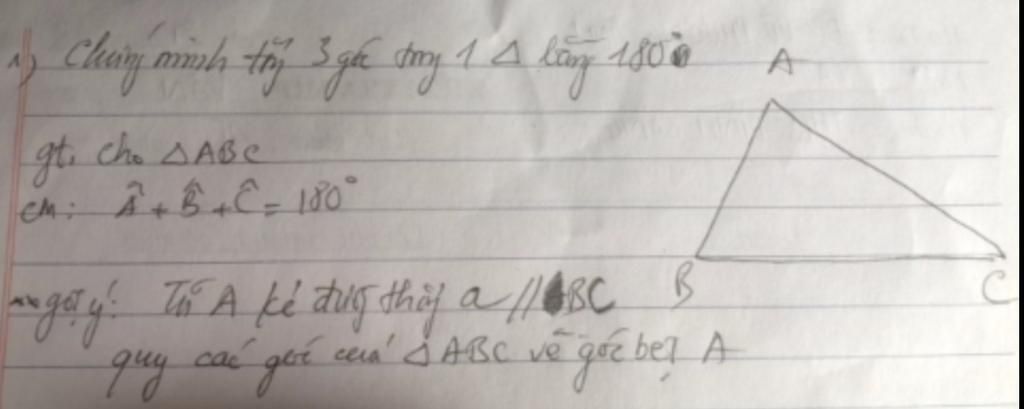 1) Chứng minh tổng 3 góc trong 1 Δ bằng 180°
A
gt: cho ΔABC
cm: Â + B̂ + Ĉ = 180°
B
C
gợi ý: Từ A kẻ đường thẳng a // BC
quy các góc của ΔABC về góc bẹt A